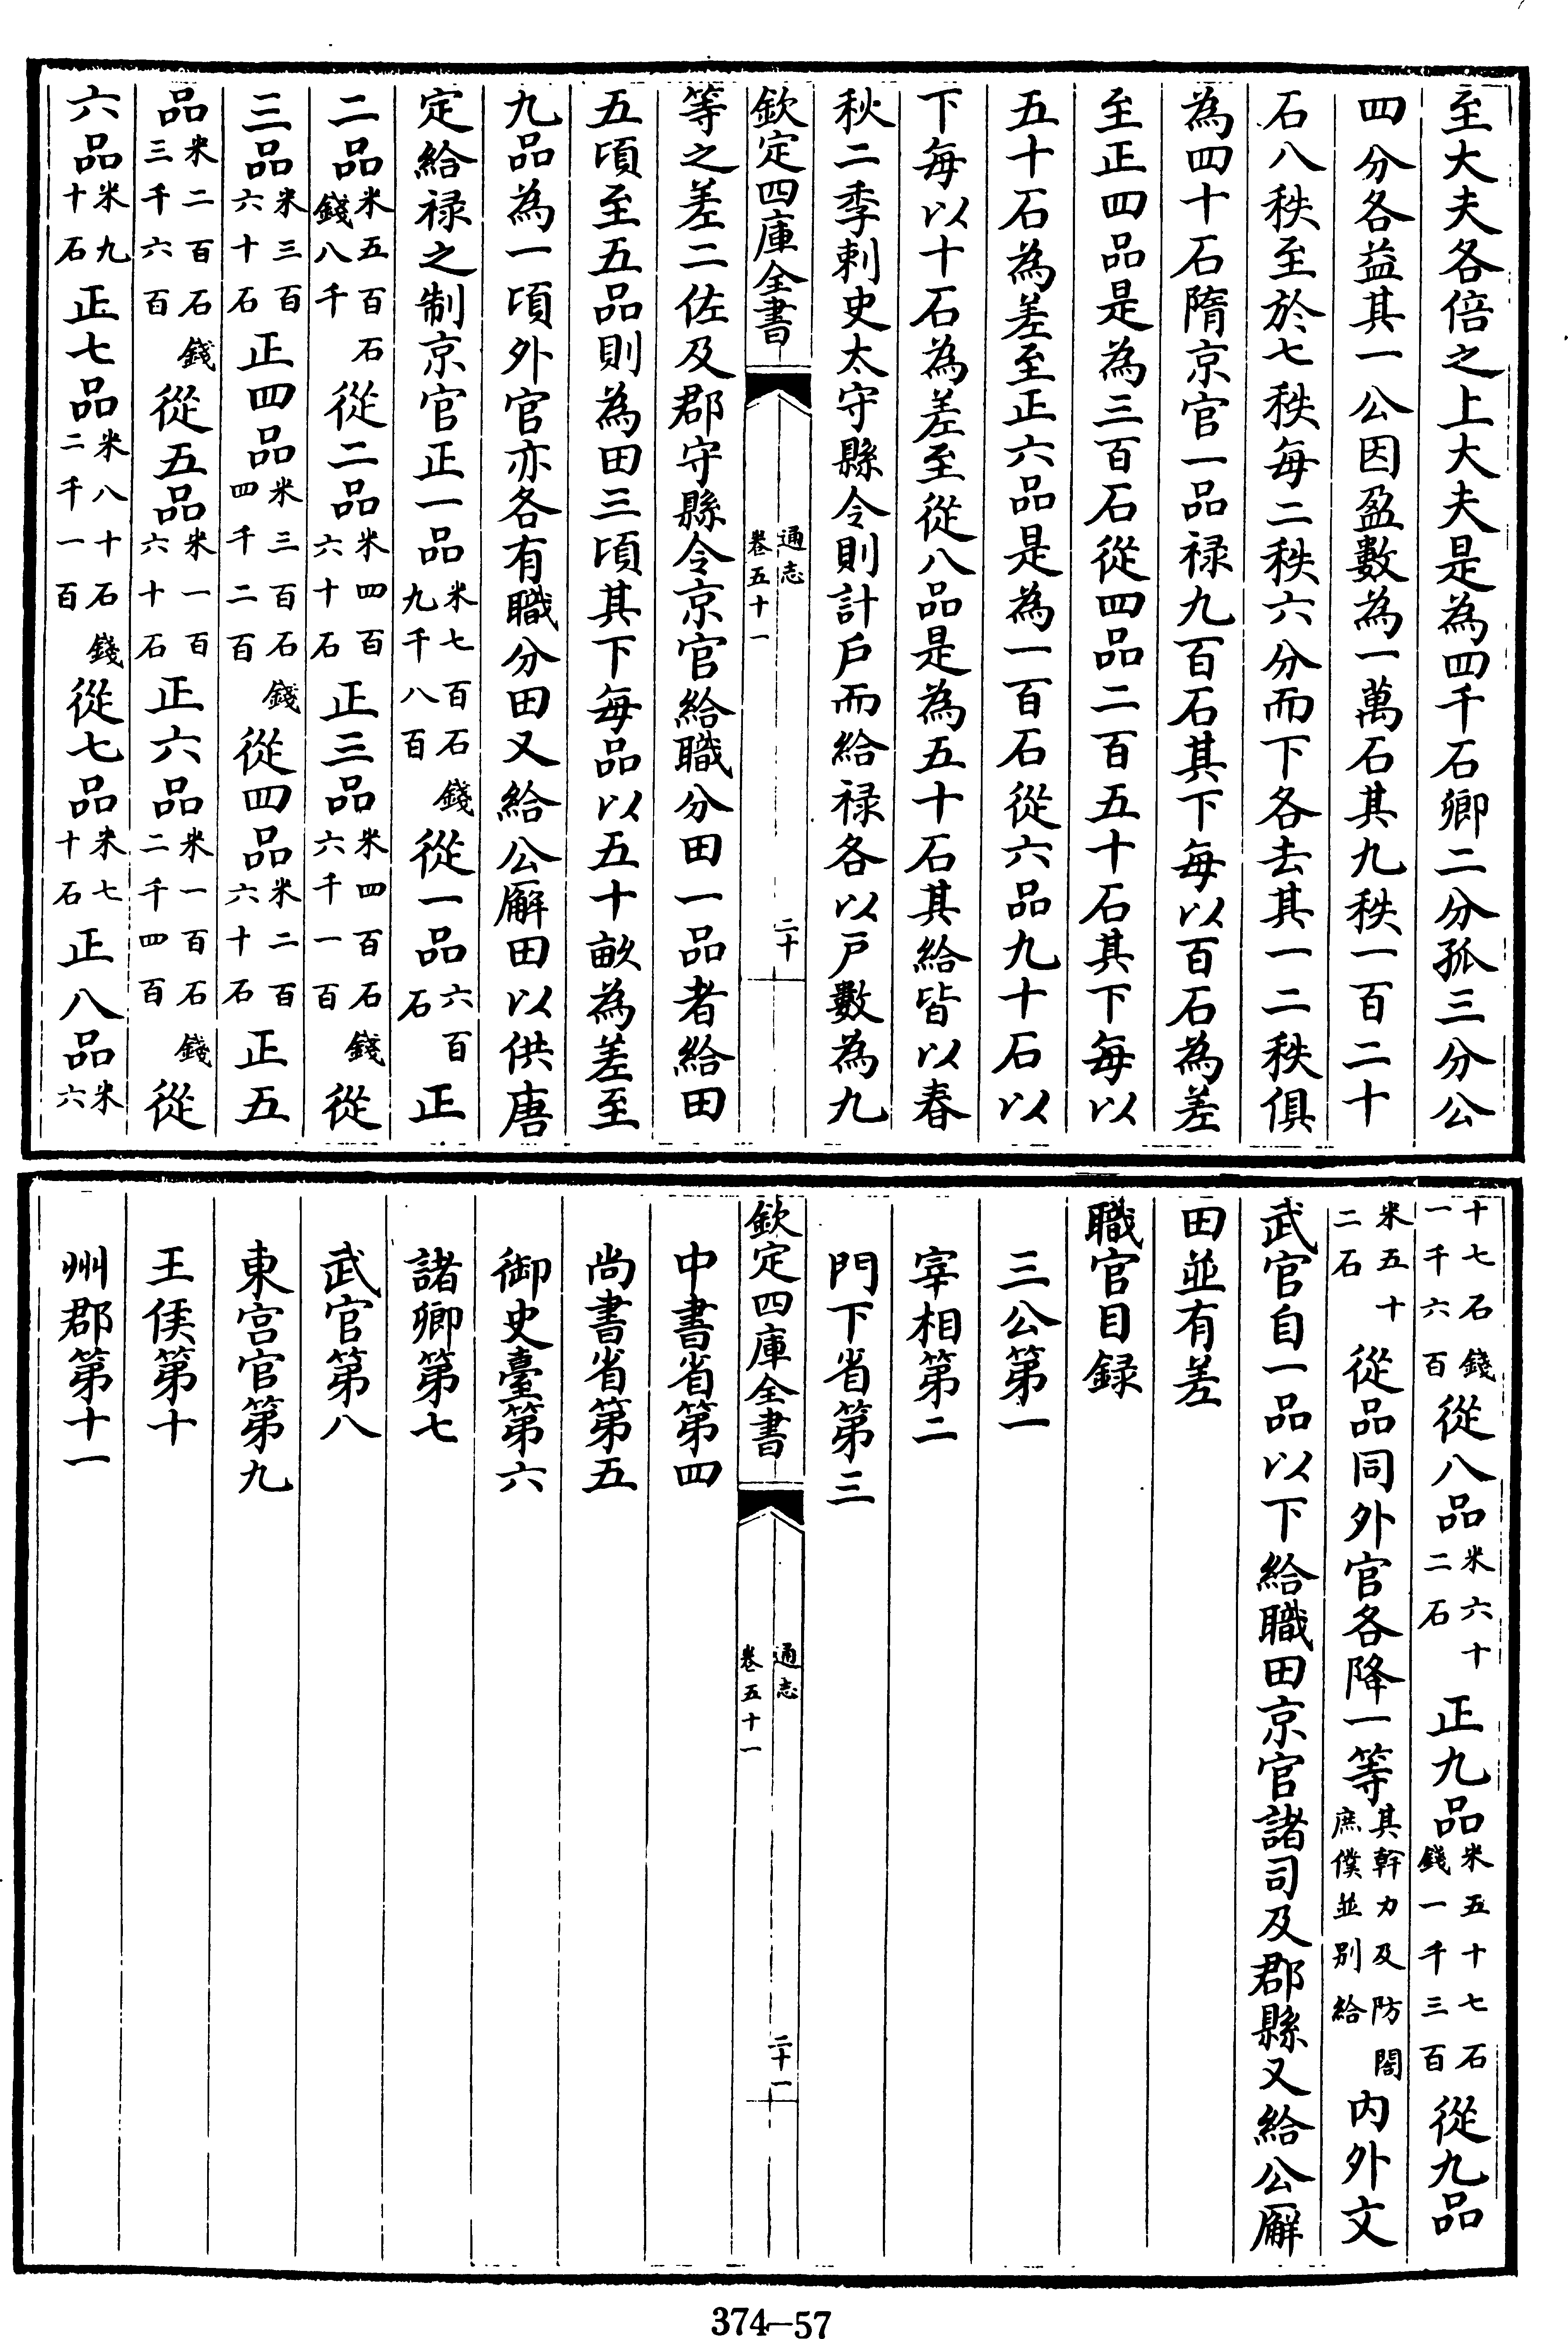 至大夫各倍之上大夫是為四千石卿二分孤三分公
四分各益其一公因盈數為一萬石其九秩一百二十
石八秩至於七秩每二秩六分而下各去其一二秩俱
為四十石隋京官一品禄九百石其下每以百石為差
至正四品是為三百石從四品二百五十石其下每以
五十石為差至正六品是為一百石從六品九十石以
下每以十石為差至從八品是為五十石其給皆以春
秋二季刺史太守縣令則計戶而給禄各以戸數為九
欽定四庫全書
通志
卷五十一
二十
等之差二佐及郡守縣令京官給職分田一品者給田
五頃至五品則為田三頃其下每品以五十畝為差至
九品為一頃外官亦各有職分田又給公廨田以供唐
定給禄之制京官正一品米七百石錢九千八百從一品六百石正
二品米五百石錢八千從二品米四百六十石正三品米四百石錢六千一百從
三品米三百六十石正四品米三百石錢四千二百從四品米二百六十石正五
品米二百石錢三千六百從五品米一百六十石正六品米一百石錢二千四百從
六品米九十石正七品米八十石錢二千一百從七品米七十石正八品米六
十七石錢一千六百從八品米六十二石正九品米五十七石錢一千三百從九品
米五十二石從品同外官各降一等其幹力及防閤庶僕並别給内外文
武官自一品以下給職田京官諸司及郡縣又給公廨
田並有差
職官目録
三公第一
宰相第二
門下省第三
欽定四庫全書
通志
卷五十一
二十一
中書省第四
尚書省第五
御史臺第六
諸卿第七
武官第八
東宫官第九
王侯第十
州郡第十一
374-57